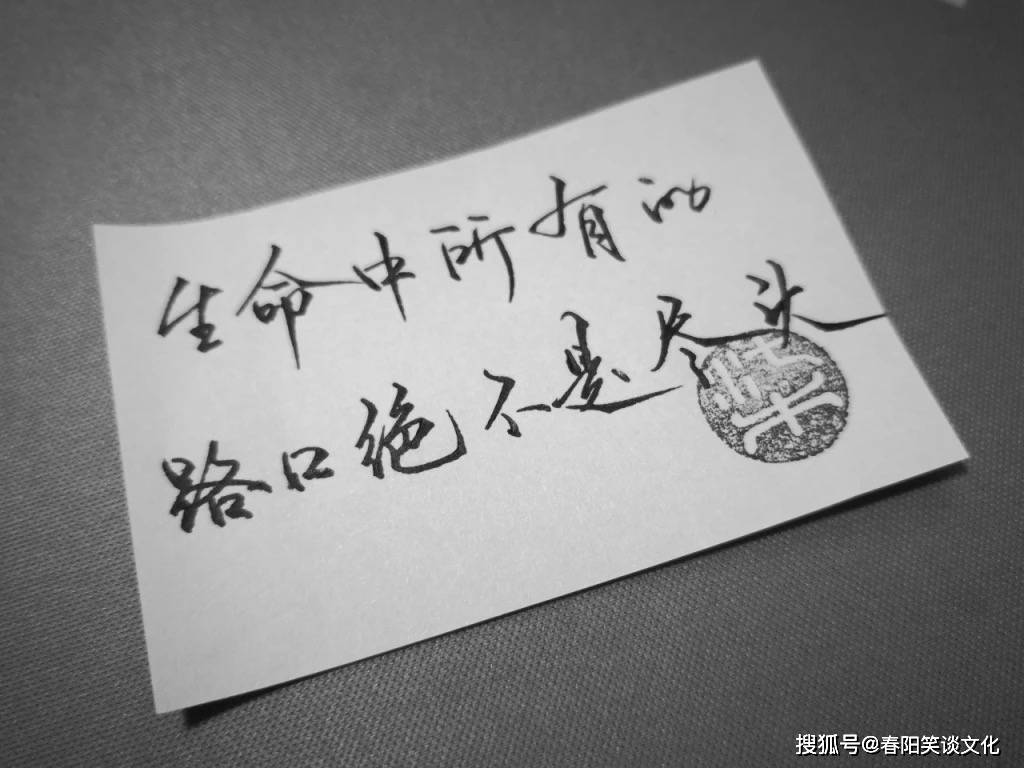 生命中所有的
路口绝不是尽头
搜狐号@春阳笑谈文化